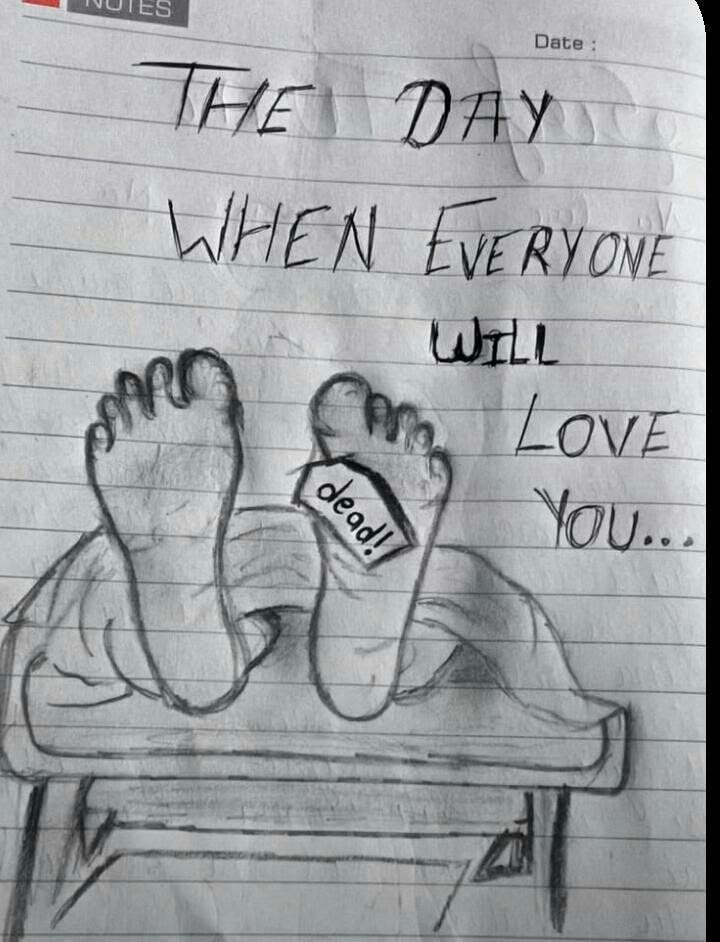 NOTES
Date :
THE DAY
WHEN EVERYONE
WILL
LOVE
YOU...
dead!